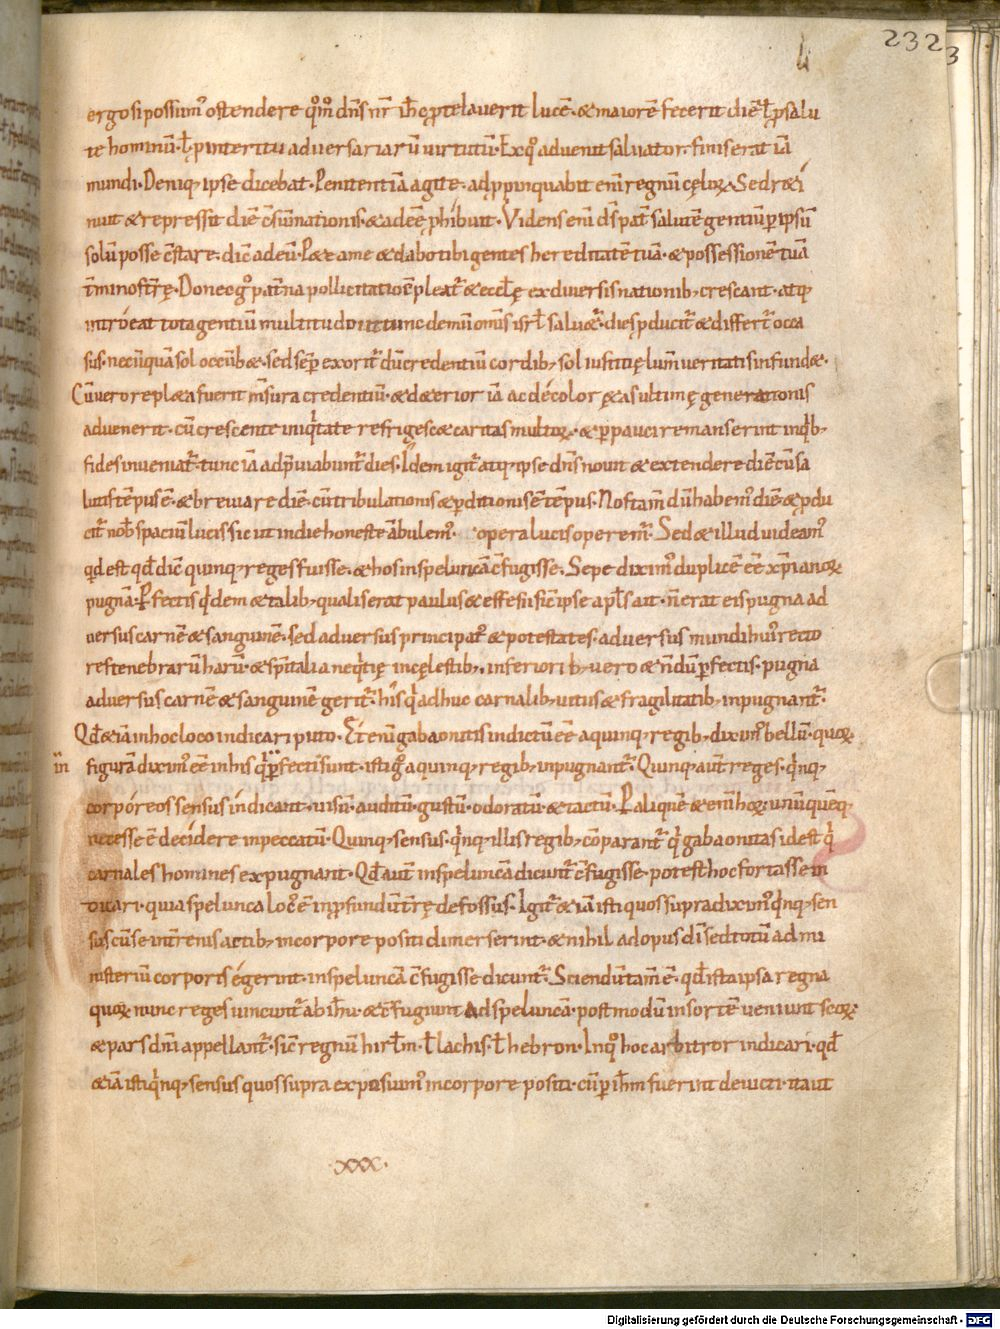 232
3
ergo si possimꝰ ostendere qm̊ dn̄s nr̄ ih̄c ꝓtelaverit lucē · & maiorē fecerit diē ł ꝓ salu
te hominū · ł ꝓ interitu adversariarū virtutū · Ex qͦ advenit salvator · finis erat iā
mundi · Deniq; ipse dicebat · Penitentiā agite · adꝓpinquabit eni regnū cęloꝝ · Sed r&i
nuit & repressit diē c̄sūmationis · & adeē ꝓhibuit · Videns eni d̄s pat̄ salutē gentiū ꝑ ipsū
solū posse c̄stare · dic̄ ad eū · P&e a me & dabo tibi gentes hereditatē tuā · & possessionē tuā
t̄minos t̄rę · Donec gͦ pat̄na pollicitatio īpleat᷑ & eccłę ex diversis nationib; crescant · atq;
introeat tota gentiū multitudo ut tunc demū om̄is isrł salu&᷑ · dies ꝓducit᷑ & differt᷑ occa
sus · nec ūquā sol occūb& · sed sēp exorit᷑ dū credentiū cordib; sol iustitię lum̄ veritatis infund& ·
Cū vero repl&a fuerit m̄sura credentiū · & d&erior iā ac décolor ętas ultimę generationis
advenerit · cū crescente iniq̇tate refrigesc& caritas multoꝝ · & ꝑpauci remanserint in q̇b;
fides inveniat᷑ · tunc iā adp̄viabunt᷑ dies · Idem igit᷑ atq; ipse dn̄s novit & extendere diē cū sa
lutis tēpus ē · & breviare diē · cū tribulationis & ꝑditionis ē tēpus · Nos tam̄ dū habemꝰ diē · & ꝓdu
cit᷑ nob̄ spaciū lucis sic ut in die honeste ābulemꝰ · opera lucis operem᷑ · Sed & illud videamꝰ
qd est qđ dic̄ quinq; reges fuisse · & hos in speluncā c̄fugisse · Sepe diximꝰ duplicē eē xp̄ianoꝝ
pugnā · Pfectis q̇dem & talib; qualis erat paulus & effesii sic̄ ipse apłs ait · n̄ erat eis pugna ad
versus carnē & sanguinē · sed adversus principatꝰ & potestates · adversus mundi huiꝰ recto
res tenebrarū harū · & sp̄italia neq̇tię in cęlestib; · inferiorib; vero & n̄dū ꝑfectis · pugna
adversus carnē & sanguinē gerit᷑ · his q̇ adhuc carnalib; vitiis & fragilitatib; inpugnant᷑ ·
Qđ & iā in hoc loco indicari puto · Et enī gabaonitis indictū eē a quinq; regib; diximꝰ bellū · quoꝝ
in
figurā diximꝰ eē in his q̇ īꝑfecti sunt · isti gͦ a quinq; regib; inpugnant᷑ · Quinq; aut̄ reges · q̇nq;
corpóreos sensus indicant · visū · auditū · gustū · odoratū · & tactū · P aliquē & enī hoꝝ · unū quēq;
necesse ē decidere in peccatū · Quinq; sensus · q̇nq; illis regib; cōparant᷑ q̇ gabaonitas id est q̇
carnales homines expugnant · Qđ aut̄ in speluncā dicunt᷑ c̄fugisse · potest hoc fortasse in
tuari · quia spelunca locꝰ ē in ꝓfundū t̄rę defossus · Igit᷑ & iā isti quos supra diximꝰ q̇nq; sen
sus cū se int̄renis actib; in corpore positi dimerserint · & nihil ad opus d̄i sed totū ad mi
nisteriū corporis égerint · in speluncā c̄fugisse dicunt᷑ · Sciendū tam̄ ē · qđ ista ipsa regna
quoꝝ nunc reges vincunt᷑ ab ih̄u · & c̄fugiunt ad speluncā · post modū in sortē veniunt sc̄oꝝ ·
& pars dn̄i appellant᷑ · sic̄ regnū hirłm · ł lachis · ł hebron · In qͦ hoc arbitror indicari · qđ
& iā isti q̇nq; sensus quos supra exposuimꝰ in corpore positi · cū ꝑ ih̄m fuerint devicti · ita ut
· xxx ·
Digitalisierung gefördert durch die Deutsche Forschungsgemeinschaft - DFG